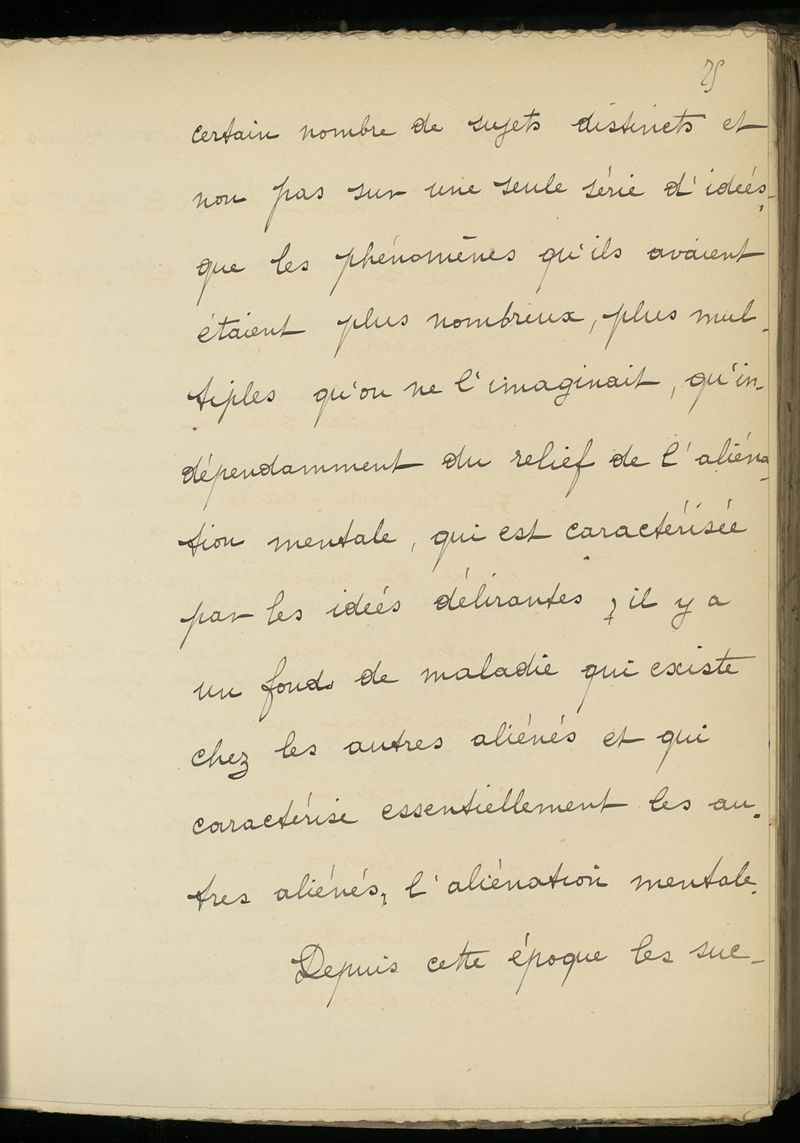 25
certain nombre de sujets distincts et
non pas sur une seule série d'ideés,
que les phénomènes qu'ils avaient
étaient plus nombreux, plus mul-
tiples qu'on ne l'imaginait, qu'in-
dépendamment du relief de l'aliéna-
tion mentale, qui est caractérisée
par les ideés délirantes, il y a
un fonds de maladie qui existe
chez les autres aliénés et qui
caractérise essentiellement les au-
tres aliénés, l'aliénation mentale.
Depuis cette époque les suc-